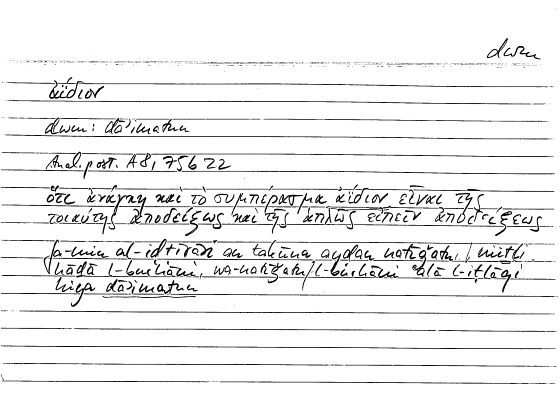 dwm
ἀΐδιον
dwm: dāʾimatun
Anal. post. A8, 75b22
ὅτι ἀνάγκη καὶ τὸ συμπέρασμα ἀΐδιον εἶναι τῆς
τοιαύτης ἀποδείξεως καὶ τῆς ἁπλῶς εἰπεῖν ἀποδείξεως
fa-min al-iḍtirāri an takūna ayḍan natīǧatu / mitli
hāḏā l-burhāni, wa-natīǧatu / l-burhāni ʿalā l-iṭlāqi
hiya dāʾimatun